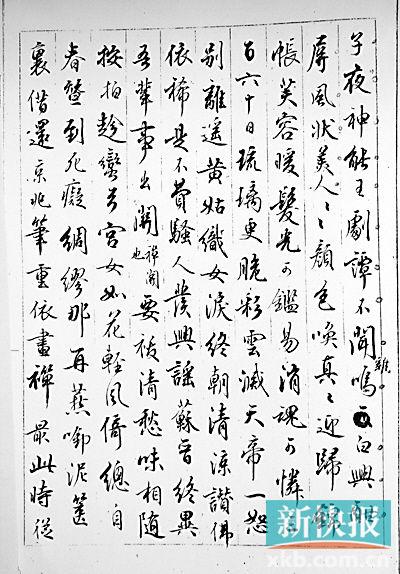 夜神能王劇譚不聞雞鳴白興
屏風狀美人々顏色喚真々迎歸錦
帳芙蓉暖鬢光可鑑易消魂可憐
百六十日琉璃更脆彩雲滅天帝一怒
別離遙黃姑織女淚終朝清涼諧佛
依稀是不費騷人發興謠蘇晉終異
吾輩事出關禪關也要被清愁味相隨
按拍趁鸞宮女如花輕風倚總自
春蠶到死癡綢繆那再燕啣泥篋
裏偕還京兆筆重依畫禪最此時從
新快报
xkb.com.cn